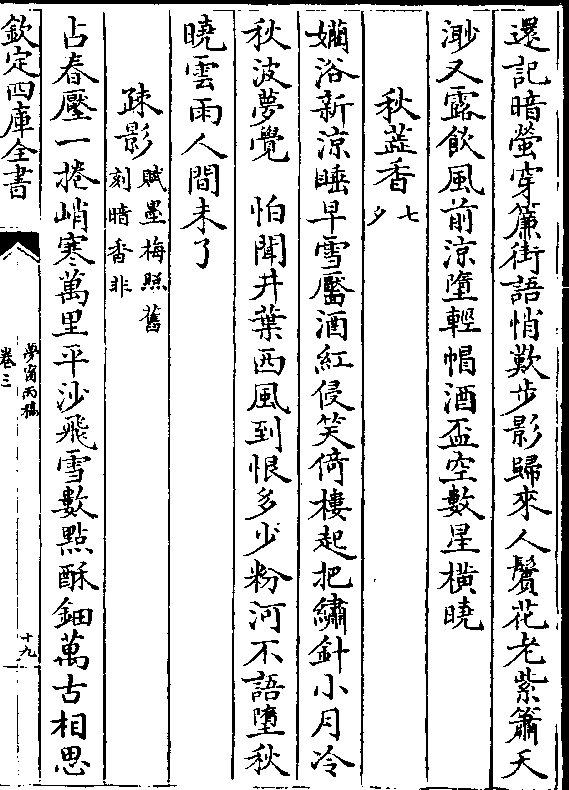 還記暗螢穿簾街語悄歎步影歸來人鬢花老紫簫天
渺又露飲風前涼墮輕帽酒盃空數星橫曉
秋蕋香七夕
嬾浴新涼睡早雪靨酒紅侵笑倚樓起把繡針小月冷
秋波夢覺　怕聞井葉西風到恨多少粉河不語墮秋
曉雲雨人間未了
疎影賦墨梅照舊刻暗香非
占春壓一捲峭寒萬里平沙飛雪數點酥鈿萬古相思
欽定四庫全書
夢窗丙稿
卷三
十九